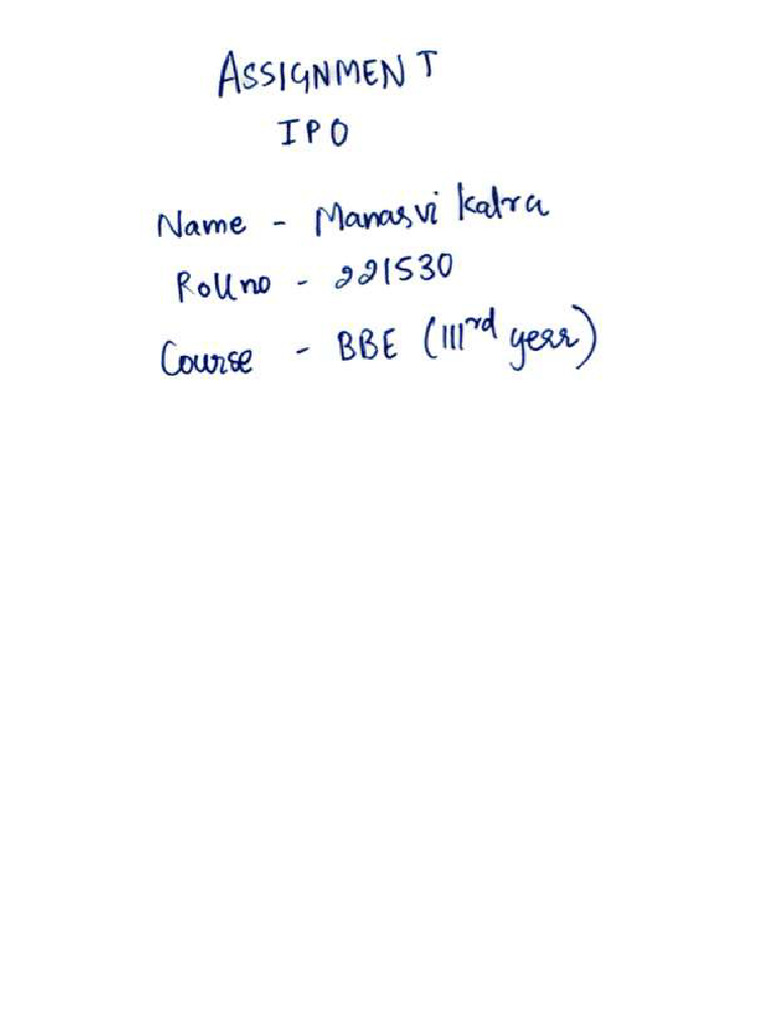 ASSIGNMENT
IPO
Name - Manasvi Kalra
Roll no - 221530
Course - BBE (IIIrd year)